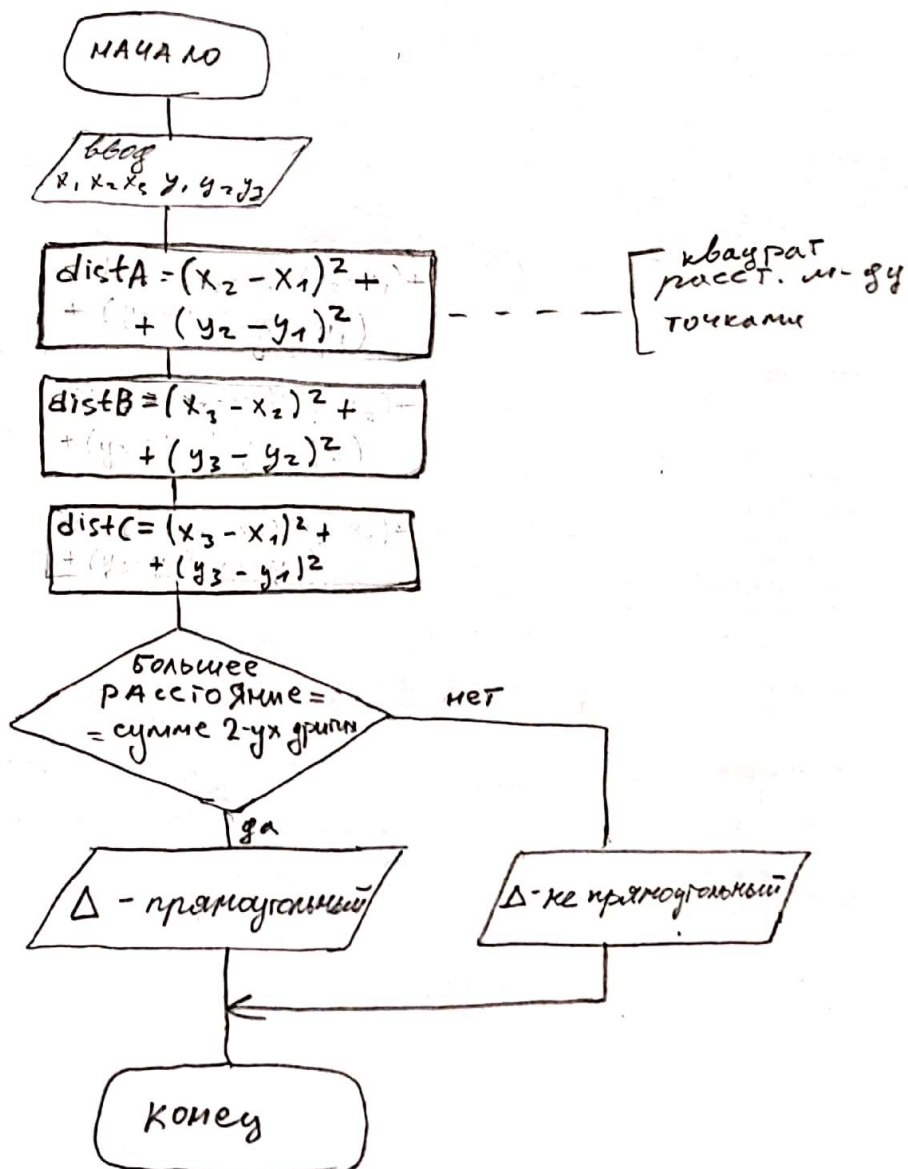 НАЧАЛО
ввод
x₁ x₂ x₃ y₁ y₂ y₃
distA = (x₂ - x₁)² +
+ (y₂ - y₁)²
квадрат
расст. м-ду
точками
distB = (x₃ - x₂) ² +
+ (y₃ - y₂)²
distC = (x₃ - x₁)² +
+ (y₃ - y₁)²
Большее
РАССТОЯНИЕ =
= сумме 2-ух других
нет
да
Δ - прямоугольный
Δ - не прямоугольный
Конец